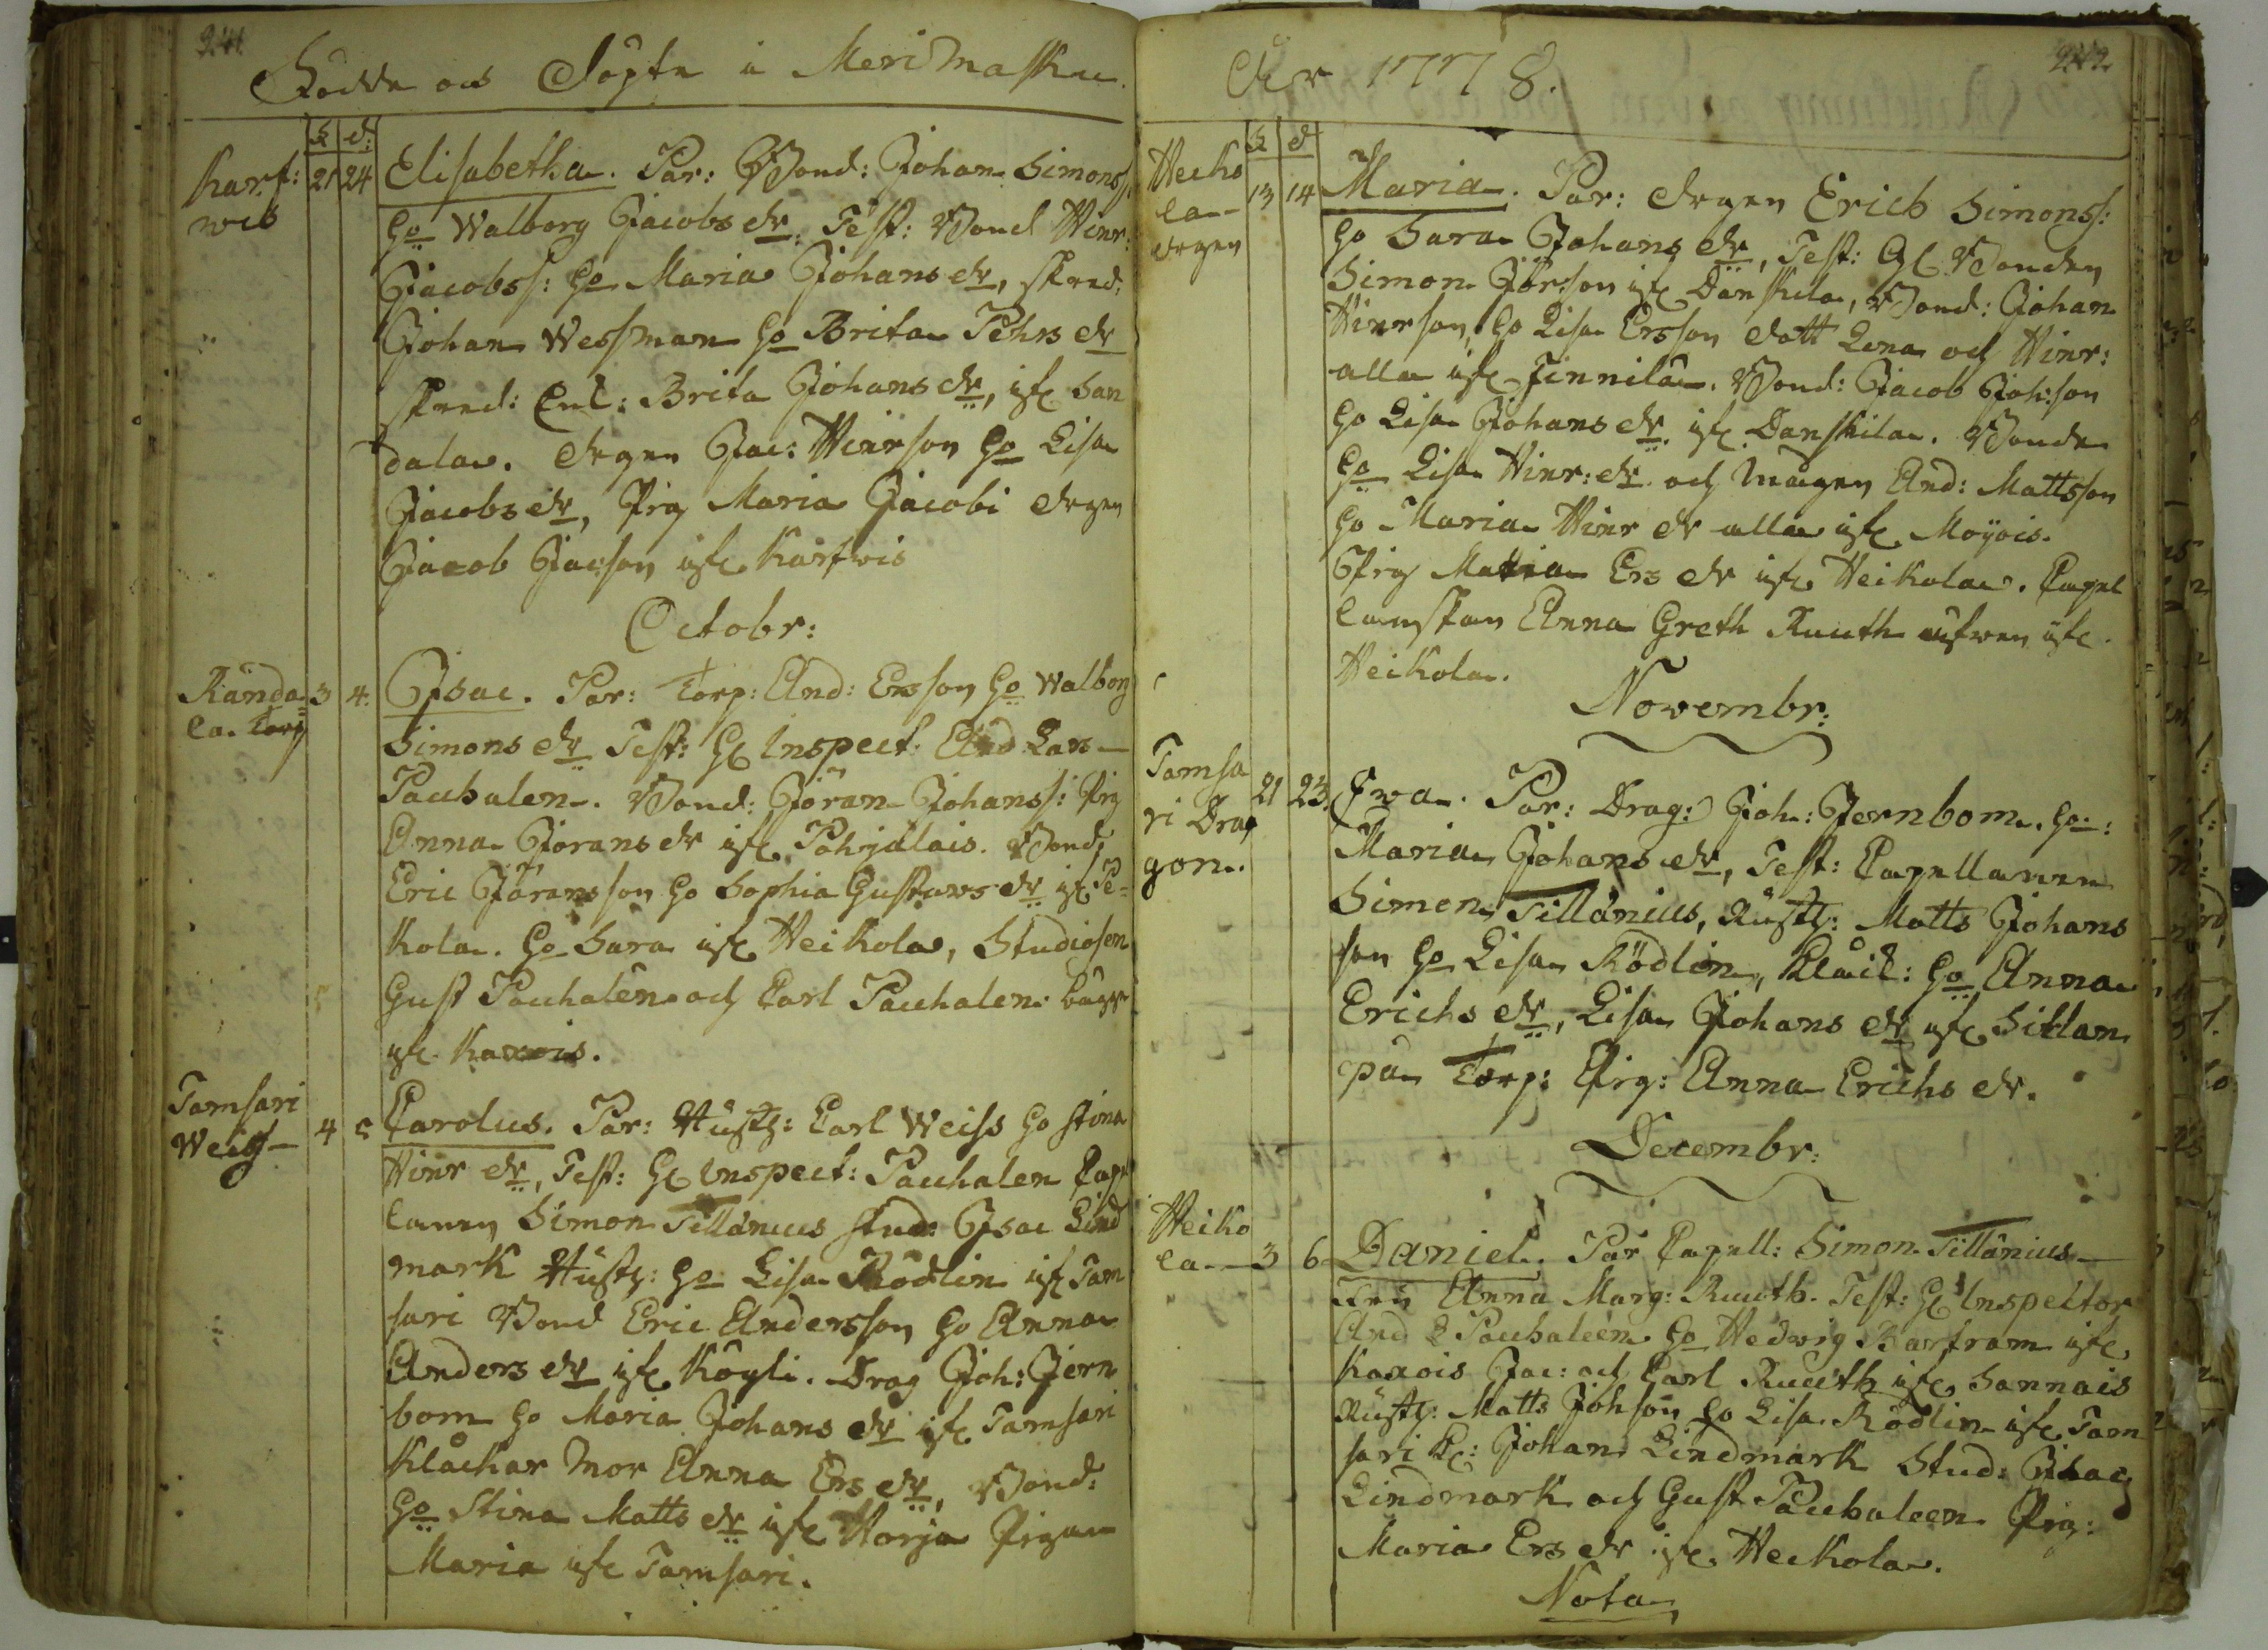 241
Födde och Döpte i Merimasku
f d:
Karf:
wis
21 24 Elisabetha. Par: Bond: Johan Simonss:
Ho Walborg Jacobs dr. Test: Bond Hinr:
Jacobss: Ho Maria Johans dr, skred:
Johan Wessman Ho Brita Pehrs dr
skred: Enk: Brita Johans dr, ifr. San
dala. drgen Jac: Hinrson Ho Lisa
Jacobs dr, Pig Maria Jacobi drgen
Jacob Jacson ifr. Karfwis
Octobr:
Randa
la. Torp
3 4. Isac. Par: Torp: And: Ersson Ho Walborg
Simons dr Test: H Inspect: And Lars
Pacchalen. Bond: Jöran Johanss: Pig
Anna Jörans dr ifr. Pohjalais. Bond:
Eric Jöransson Ho Sophia Gustavs dr ifr. Pe-
kola. Ho Sara ifr Heikola, Studiosen
Gust Pacchalen och Carl Pacchalen
ifr. Kaxois.
Tamsari
Weiss
4 5 Carolus. Par: Rusth: Carl Weiss Ho Stina
Hinr dr, Test: H Inspect: Pacchalen Capel
lanen Simon Tillänius Stud: Isac Lind
mark Rusth: Ho Lisa Rödlin ifr Tam
sari Bond Eric Andersson Ho Anna
Anders dr ifr Köyli. Drag Joh: Jern
bom Ho Maria Johans dr ifr Tamsari
Klåckar mor Anna Ers dr, Bond:
Ho Stina Matts dr ifr Horja Pigan
Maria ifr Tamsari.
242
Åhr 1778.
f d
Heiko
la
drgen
13 14 Maria. Par: drgen Erich Simonss:
Ho Sara Johans dr, Test: Gl Bonden
Simon Jörson ifr Danskila, Bond: Johan
Hinrson, Ho Lisa Ersson dott Lena och Hinr:
alla ifr Finnila. Bond: Jacob Johson
Ho Lisa Johans dr. ifr Danskila. Bonde
Ho Lisa Hinr: dr. och mågen And: Mattsson
Ho Maria Hinr dr alla ifr. Moÿois.
Pig Maria Ers dr ifr Heikola. Capel
lanskan Anna Greth Ruuth äfwen ifr.
Heikola.
Novembr:
Tamsa
ri Dra
gon.
21 23. Ewa. Par: Drag: Joh: Jernbom. Ho:
Maria Johans dr, Test: Capellanen
Simon Tillänius, Rusth: Matts Johans
son Ho Lisa Rödlin, Klåck: Ho Anna
Erichs dr, Lisa Johans dr ifr Sillan
pä Torp: Pig: Anna Erichs dr.
Decembr:
Heiko
la
3 6 Daniel. Par Capell: Simon Tillänius
Fru Anna Marg: Ruuth. Test: H Inspector
And L Pacchaleen Ho Hedwig Bartram ifr.
Kaxois Jac: och Carl Ruuth ifr Sannais
Rusth: Matts Johson Ho Lisa Rödlin ifr Tam
sari Kl: Johan Lindmark Stud: Isac
Lindmark och Gust Pacchaleen Pig:
Maria Ers dr ifr. Heikola.
Nota